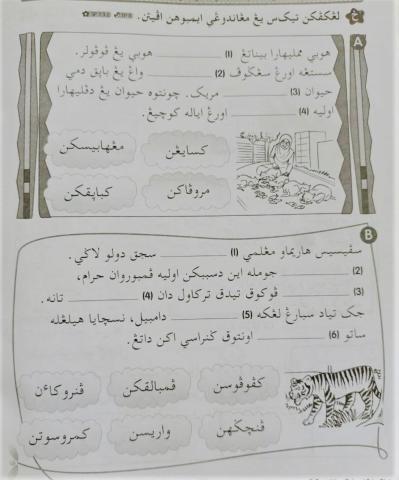 لڠكڤكن تيک‌س يڠ مڠاندوڠي ايمبوهن اڤيتن.
A
هوبي ممليهارا بيناتڠ (1) ________ هوبي يڠ ڤوڤولر.
سستڠه اورڠ سڠݢوڤ (2) ________ واڠ يڠ باڽق دمي
حيوان (3) ________ مريک. چونتوه حيوان يڠ دڤليهارا
اوليه (4) ________ اورڠ اياله کوچيڠ.
کساڽڠن
مڠهابيسکن
مروڤاکن
کباڽقکن
B
سڤيسيس هاريماو مڠلمي (1) ________ سجق دولو لاݢي.
(2) ________ جومله اين دسببکن اوليه ڤمبوروان حرام،
(3) ________ ڤوکوق تيدق ترکاول دان (4) ________ تانه.
جک تياد سبارڠ لڠکه (5) ________ دامبيل، نسچاي هيلڠله
ساتو (6) ________ اونتوق ݢنراسي اکن داتڠ.
کڤوڤوسن
ڤمبالقکن
ڤنروکاءن
ڤنچݢهن
واريسن
کمروسوتن